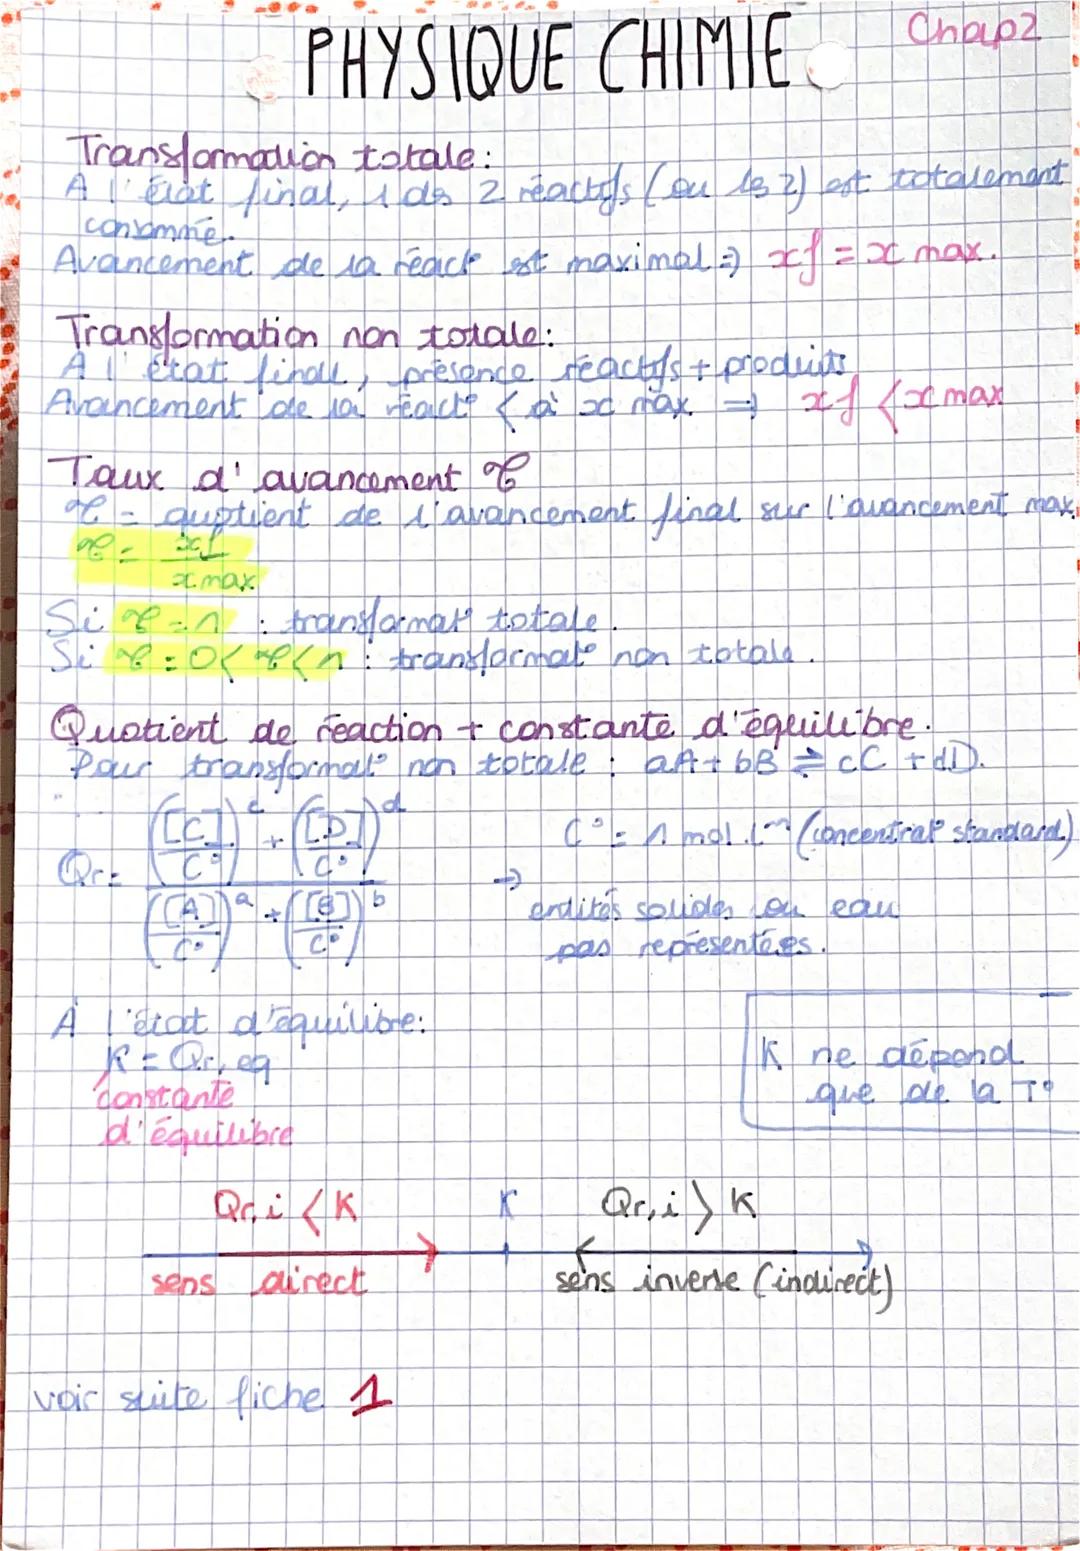 PHYSIQUE CHIMIE
Chap2
Transformation totale:
A l'état final, 1 ds 2 réactifs (ou les 2) est totalement
consommé.
Avancement de la réact° est maximal => xf = x max.
Transformation non totale:
A l'état final, présence réactifs + produits
Avancement de la réact° < à x max => xf < x max
Taux d'avancement τ
τ = quotient de l'avancement final sur l'avancement max.
τ = xf / x max
Si τ = 1 : transformat° totale.
Si τ : 0 < τ < 1 : transformat° non totale.
Quotient de réaction + constante d'équilibre.
Pour transformat° non totale : aA + bB ⇌ cC + dD.
Qr = (([C]/C°)^c + ([D]/C°)^d) / (([A]/C°)^a + ([B]/C°)^b)
C° = 1 mol.L⁻¹ (concentrat° standard)
→ entités solides ou eau
pas représentées.
A l'état d'équilibre:
K = Qr, eq
constante
d'équilibre
K ne dépend
que de la T°
Qr,i < K
K
Qr,i > K
sens direct
sens inverse (indirect)
voir suite fiche 1